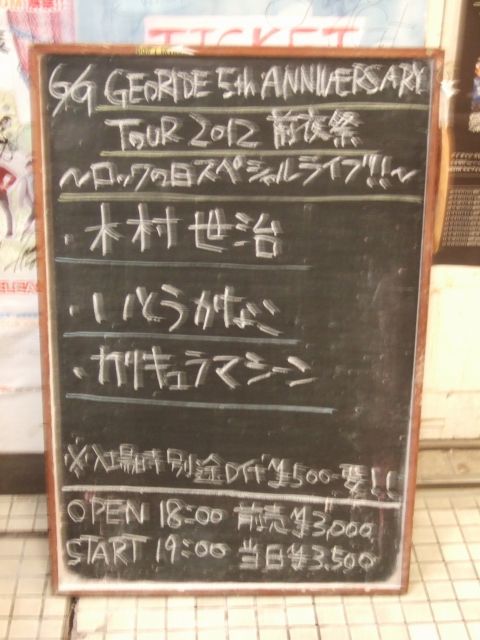 TICKET
6/9 GEORIDE 5th ANNIVERSARY
TOUR 2012 前夜祭
～ロックの日スペシャルライブ!!!～
・木村世治
・いとうかなこ
・カリキュラマシーン
※入場時別途D代¥500-要!!
OPEN 18:00 前売¥3,000
START 19:00 当日¥3,500